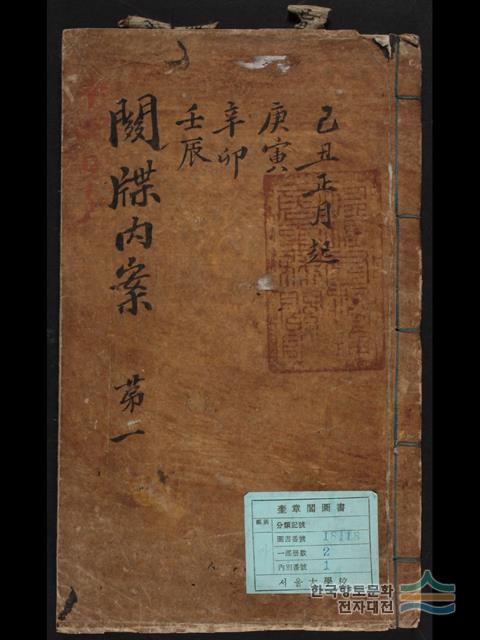 己丑正月起
庚寅
辛卯
壬辰
關牒內案 第一
奎章閣圖書
分類記號
圖書番號 18118
一部冊數 2
內別番號 1
서울大學校
한국향토문화
전자대전